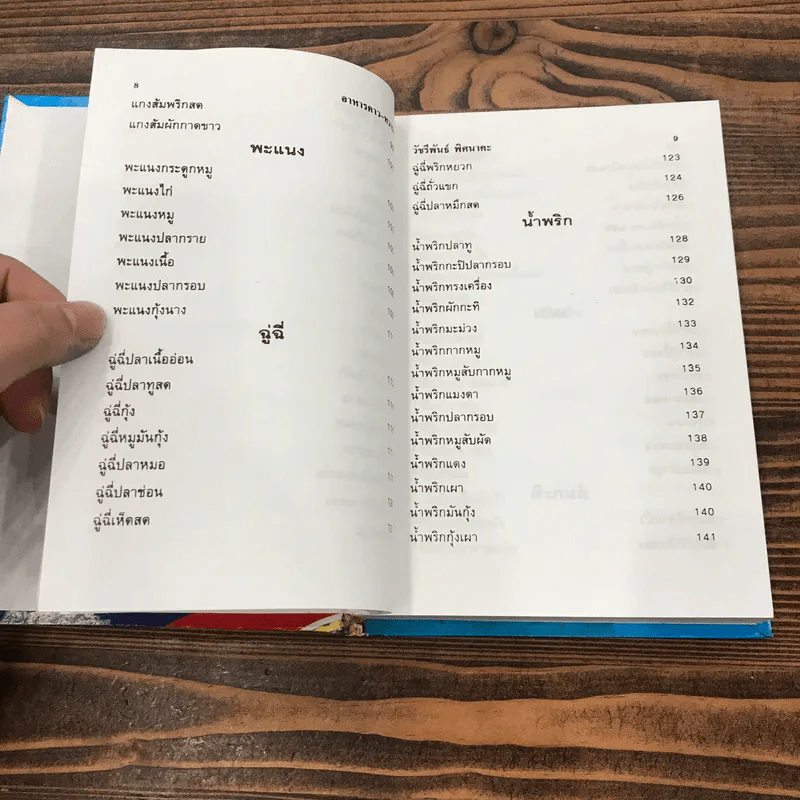 8
อาหารคาว-หวาน
แกงส้มพริกสด
แกงส้มผักกาดขาว
พะแนง
พะแนงกระดูกหมู
พะแนงไก่
พะแนงหมู
พะแนงปลากราย
พะแนงเนื้อ
พะแนงปลากรอบ
พะแนงกุ้งนาง
ฉู่ฉี่
ฉู่ฉี่ปลาเนื้ออ่อน
ฉู่ฉี่ปลาทูสด
ฉู่ฉี่กุ้ง
ฉู่ฉี่หมูมันกุ้ง
ฉู่ฉี่ปลาหมอ
ฉู่ฉี่ปลาช่อน
ฉู่ฉี่เห็ดสด
วัชรีพันธ์ พิศนาคะ 9
ฉู่ฉี่พริกหยวก 123
ฉู่ฉี่ถั่วแขก 124
ฉู่ฉี่ปลาหมึกสด 126
น้ำพริก
น้ำพริกปลาทู 128
น้ำพริกกะปิปลากรอบ 129
น้ำพริกทรงเครื่อง 130
น้ำพริกผักกะทิ 132
น้ำพริกมะม่วง 133
น้ำพริกกากหมู 134
น้ำพริกหมูสับกากหมู 135
น้ำพริกแมงดา 136
น้ำพริกปลากรอบ 137
น้ำพริกหมูสับผัด 138
น้ำพริกแดง 139
น้ำพริกเผา 140
น้ำพริกมันกุ้ง 140
น้ำพริกกุ้งเผา 141